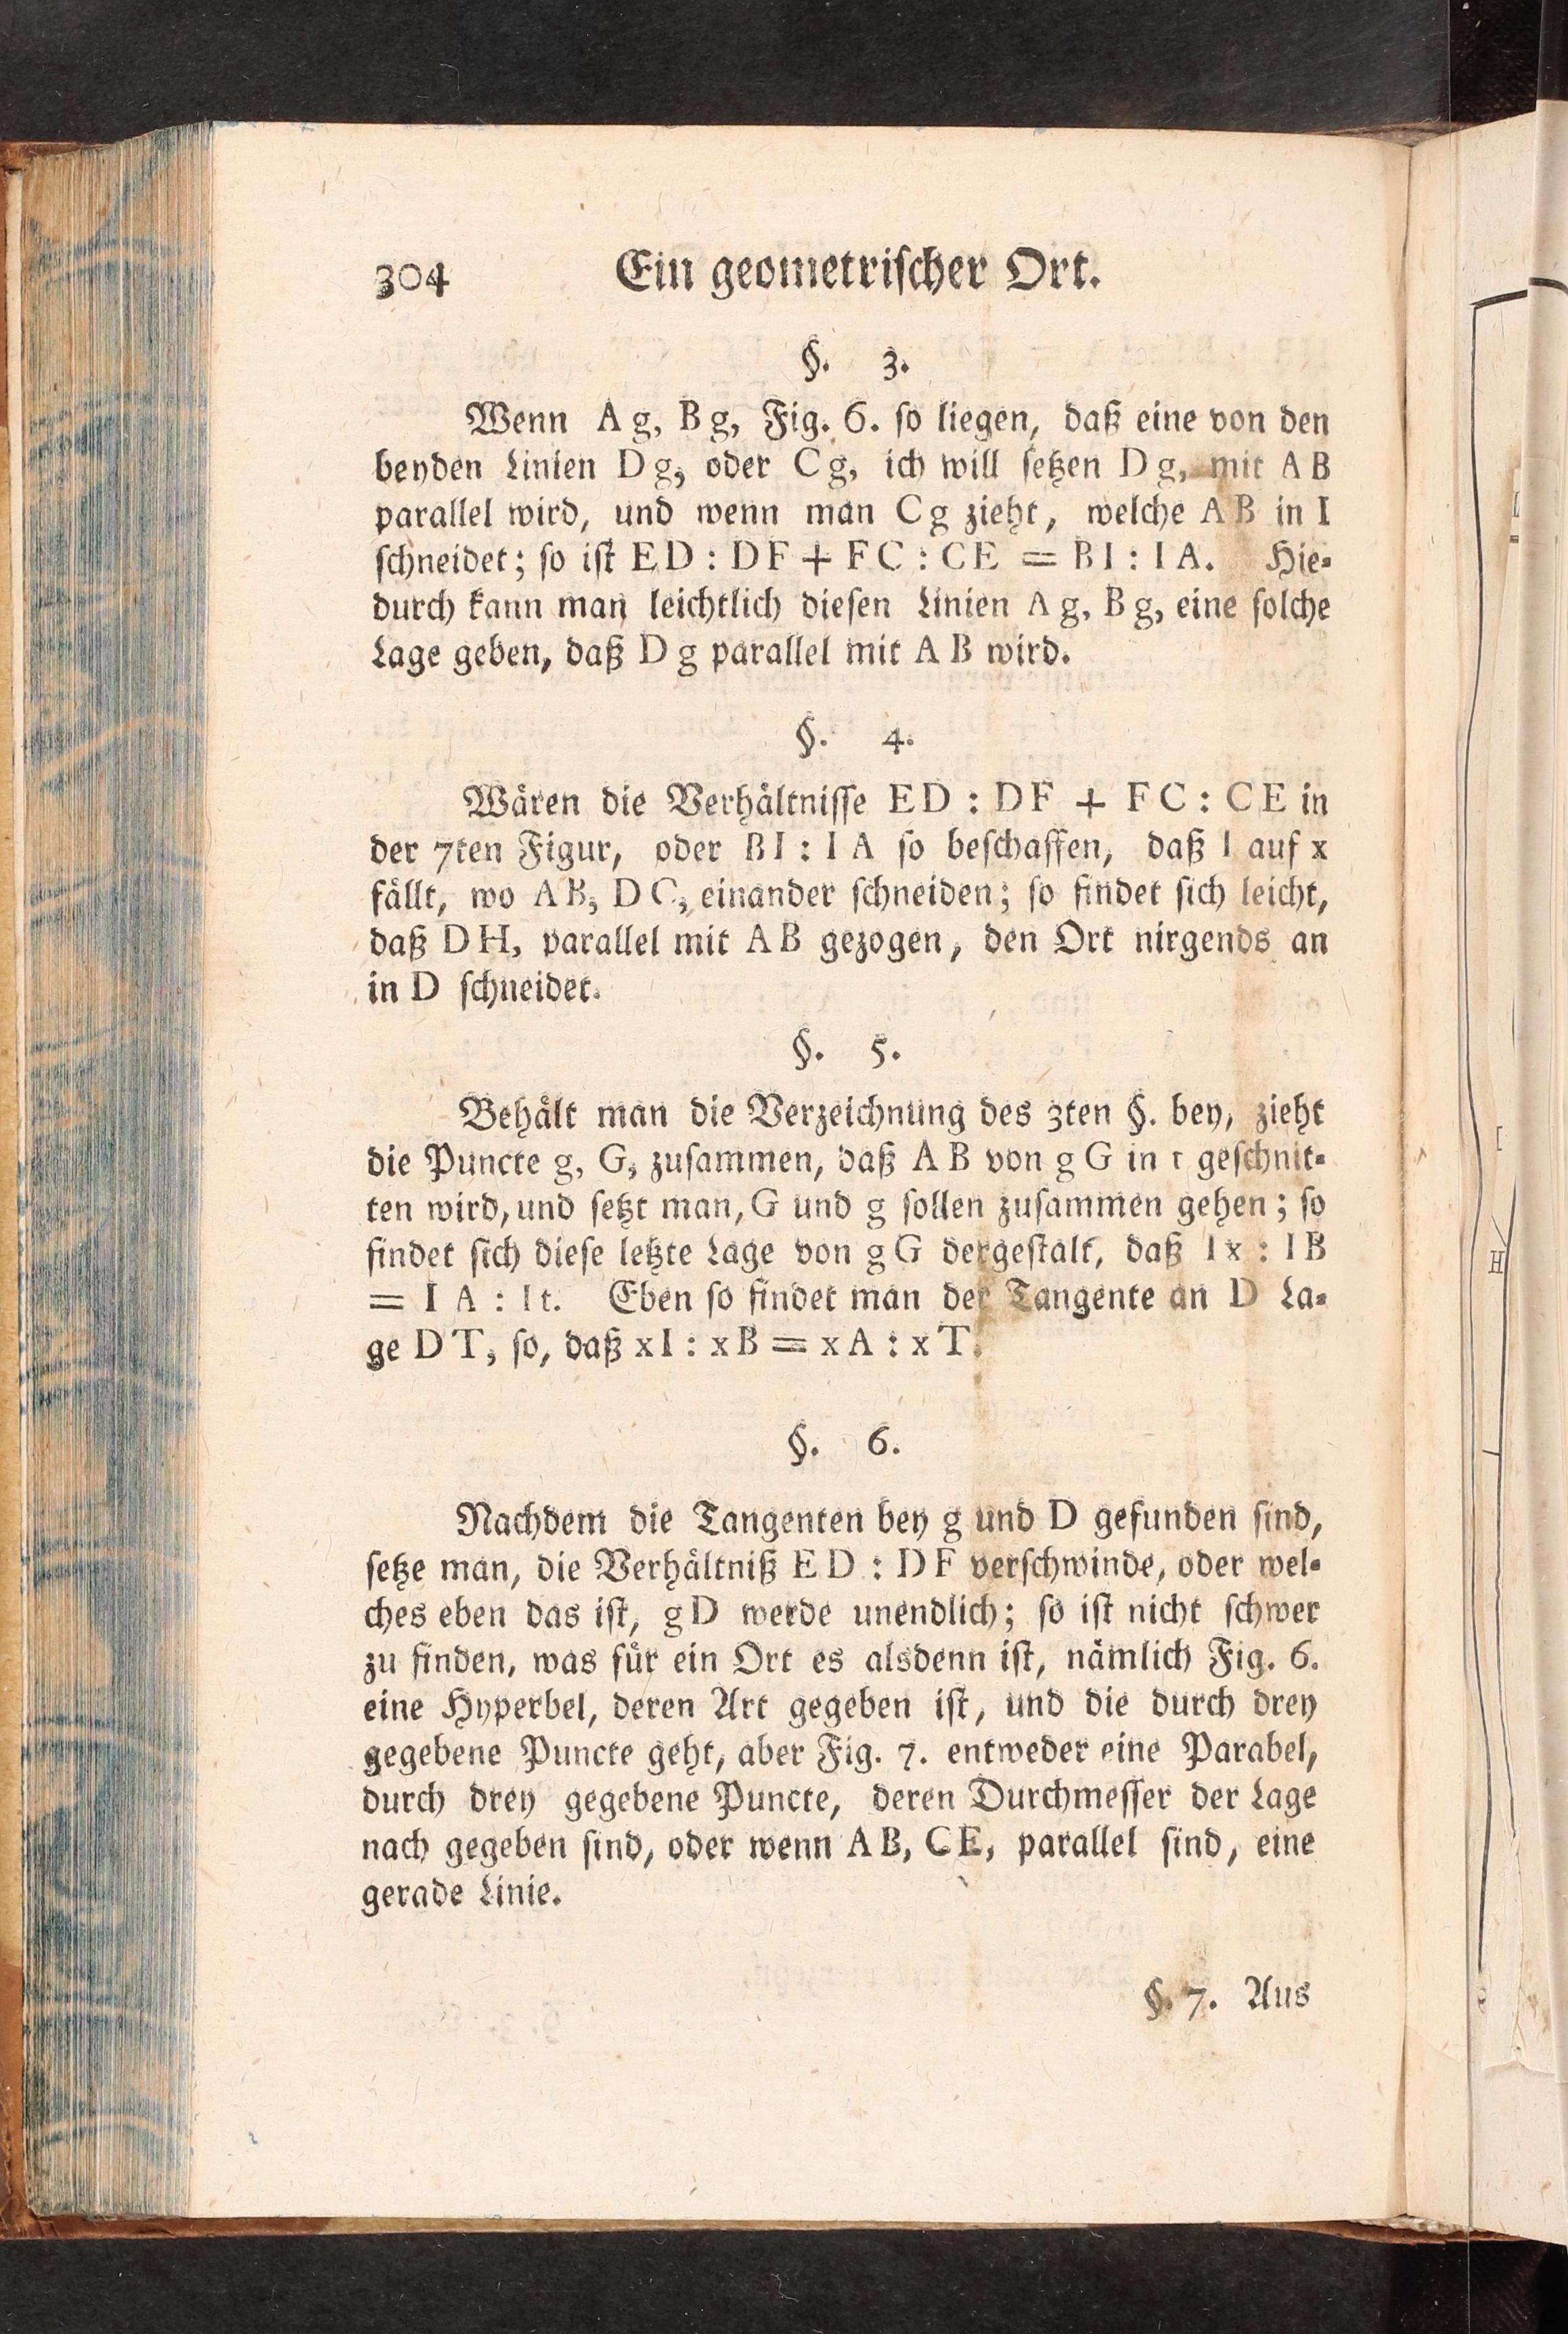 304 Ein geometrischer Ort.
§. 3.
Wenn A g, B g, Fig. 6. so liegen, daß eine von den
beyden Linien D g, oder C g, ich will setzen D g, mit A B
parallel wird, und wenn man C g zieht, welche A B in I
schneidet; so ist E D : D F + F C : C E = B I : I A. Hie-
durch kann man leichtlich diesen Linien A g, B g, eine solche
Lage geben, daß D g parallel mit A B wird.
§. 4.
Wären die Verhältnisse E D : D F + F C : C E in
der 7ten Figur, oder B I : I A so beschaffen, daß I auf x
fällt, wo A B, D C, einander schneiden; so findet sich leicht,
daß D H, parallel mit A B gezogen, den Ort nirgends an
in D schneidet.
§. 5.
Behält man die Verzeichnung des 3ten §. bey, zieht
die Puncte g, G, zusammen, daß A B von g G in t geschnit-
ten wird, und setzt man, G und g sollen zusammen gehen; so
findet sich diese letzte Lage von g G dergestalt, daß I x : I B
= I A : I t. Eben so findet man der Tangente an D La-
ge D T, so, daß x I : x B = x A : x T.
§. 6.
Nachdem die Tangenten bey g und D gefunden sind,
setze man, die Verhältniß E D : D F verschwinde, oder wel-
ches eben das ist, g D werde unendlich; so ist nicht schwer
zu finden, was für ein Ort es alsdenn ist, nämlich Fig. 6.
eine Hyperbel, deren Art gegeben ist, und die durch drey
gegebene Puncte geht, aber Fig. 7. entweder eine Parabel,
durch drey gegebene Puncte, deren Durchmesser der Lage
nach gegeben sind, oder wenn A B, C E, parallel sind, eine
gerade Linie.
§. 7. Aus
H